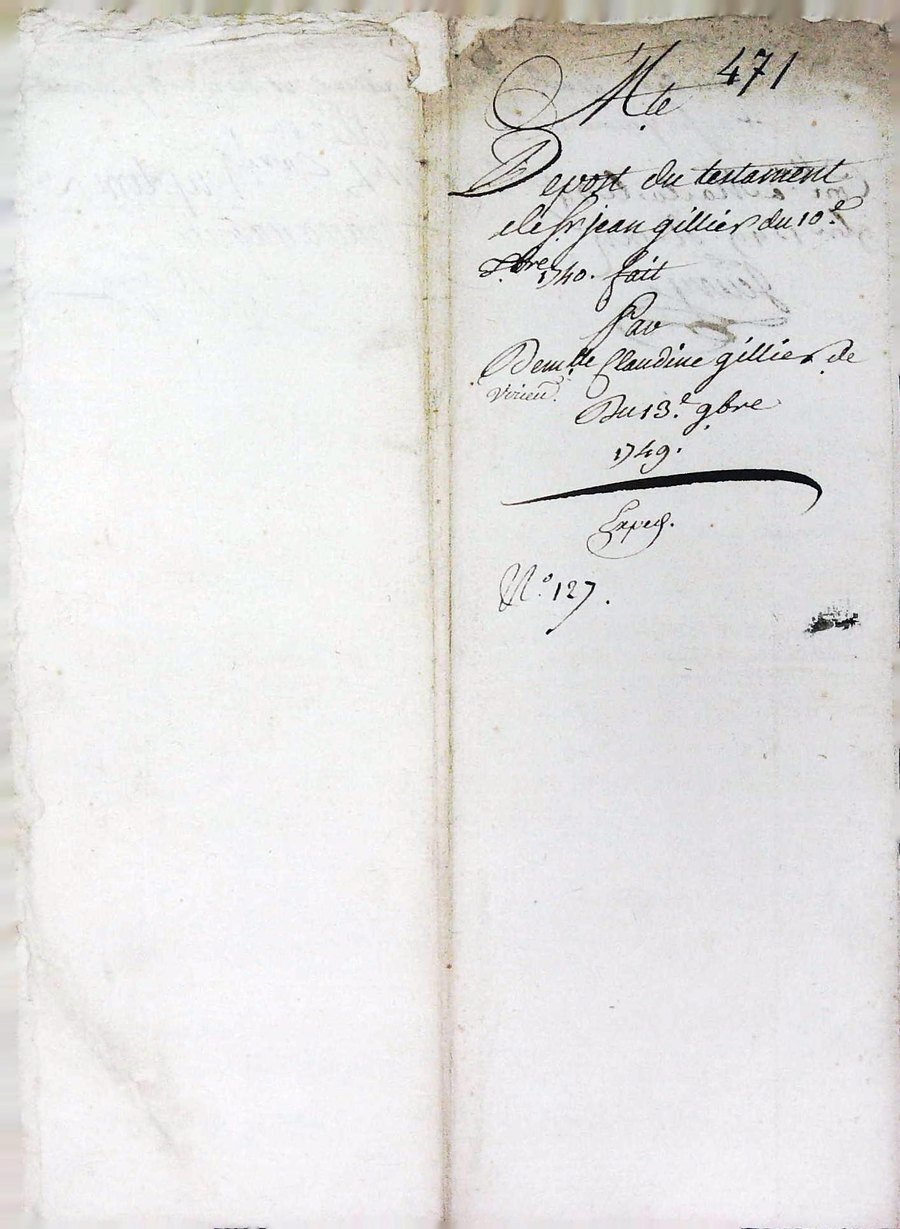 471
Mte
Depost du testament
de Sr jean gillier du 10e
1740. fait
Par
Demlle Claudine gillier de
Virieu.
Du 13e 9bre
1749.
Exped.
No. 127.